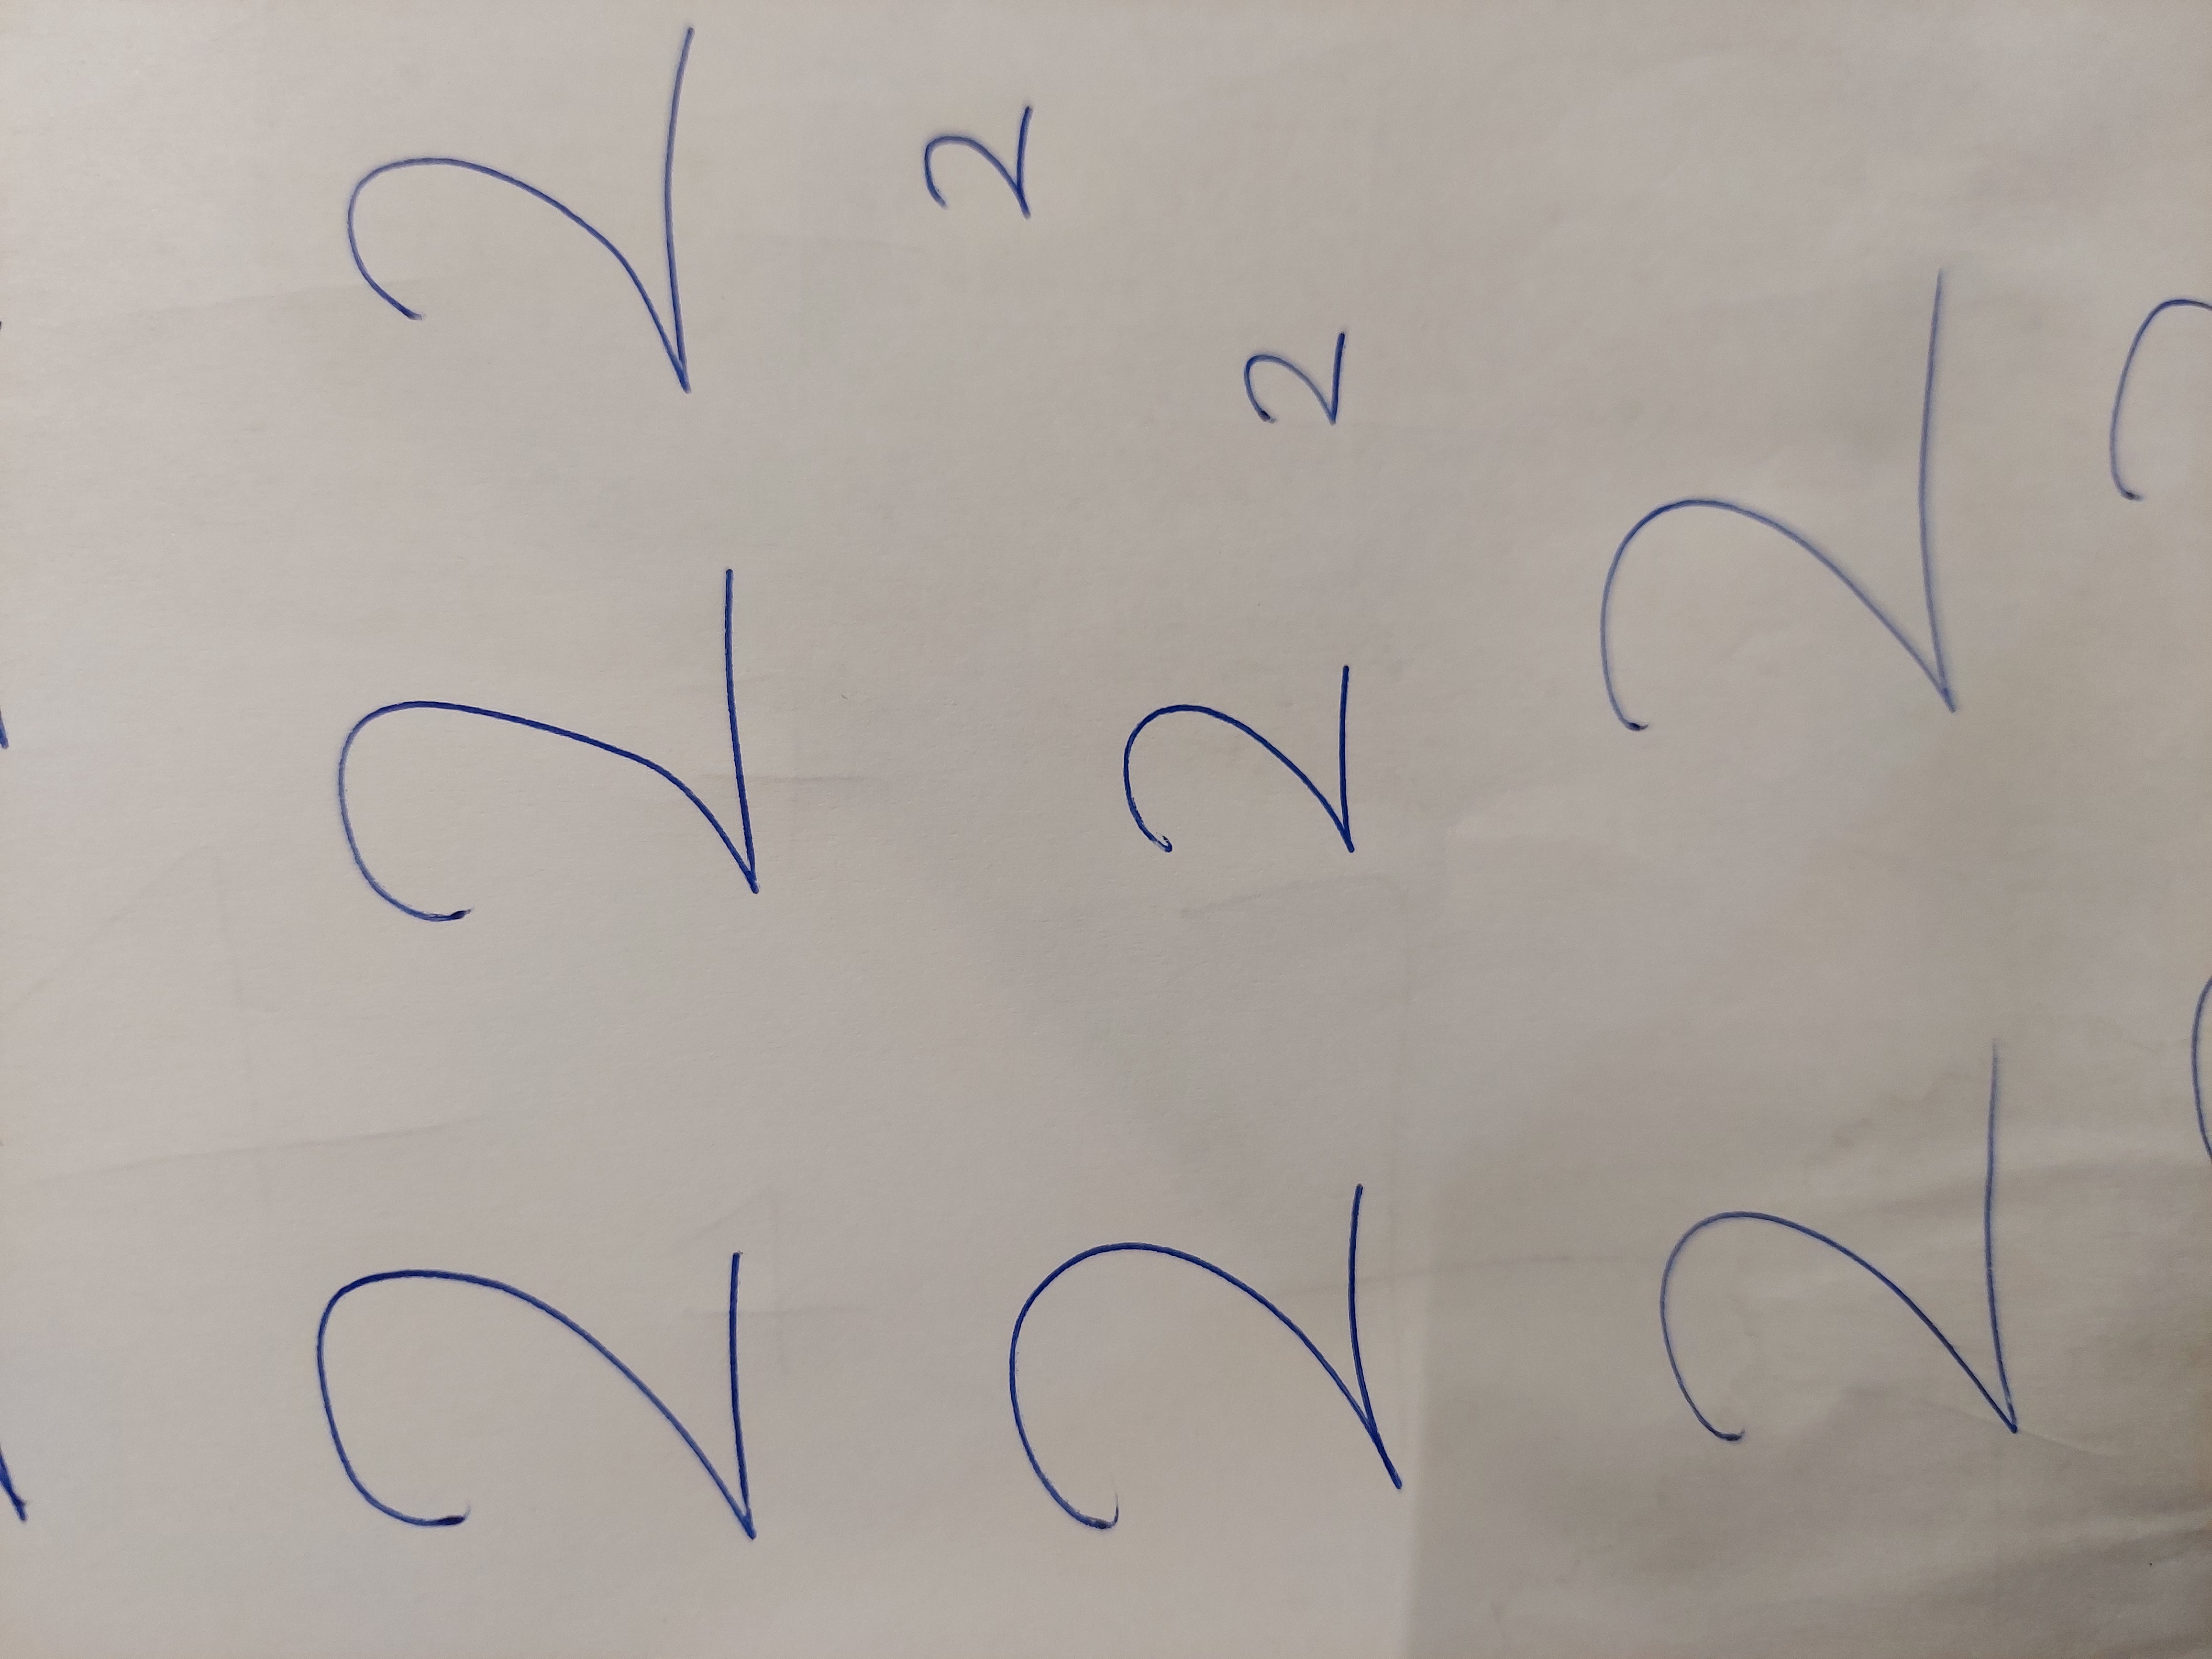 2 2 2
2
2 2 2
2 2